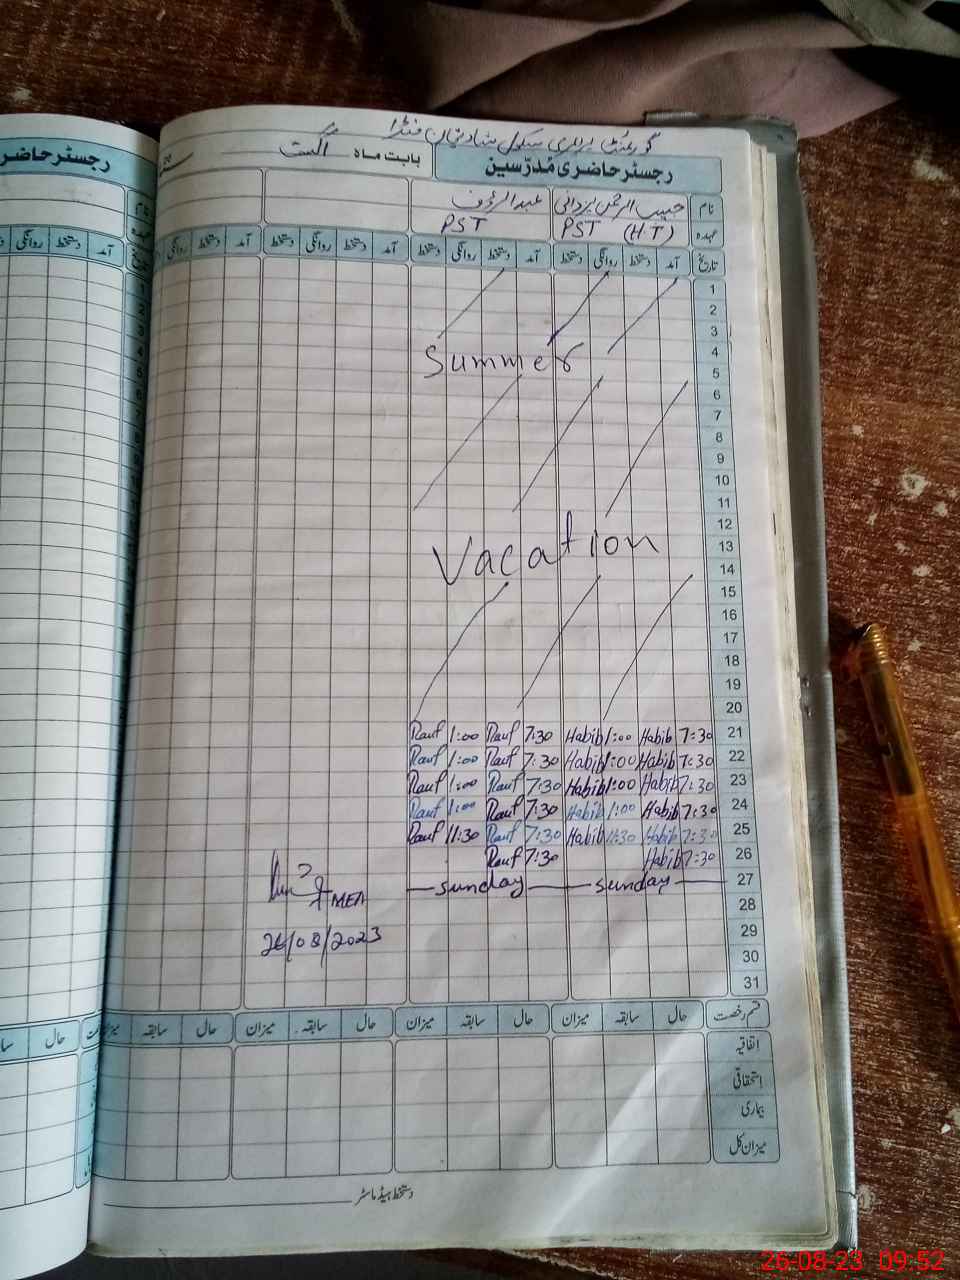 گورنمنٹ پرائمری سکول
رجسٹر حاضری مُدرّسین بابت ماہ اگست
رجسٹر حاضری
نام حبیب الرحمٰن یزدانی عبدالرؤف
عہدہ PST (H.T) PST
تاریخ آمد دستخط روانگی دستخط آمد دستخط روانگی دستخط آمد دستخط روانگی دستخط آمد دستخط روانگی دستخط
1
2
3
4 Summer
5
6
7
8
9
10
11
12
13 Vacation
14
15
16
17
18
19
20
Rauf 1:00 Rauf 7:30 Habib 1:00 Habib 7:30 21
Rauf 1:00 Rauf 7:30 Habib 1:00 Habib 7:30 22
Rauf 1:00 Rauf 7:30 Habib 1:00 Habib 7:30 23
Rauf 1:00 Rauf 7:30 Habib 1:00 Habib 7:30 24
Rauf 11:30 Rauf 7:30 Habib 11:30 Habib 7:30 25
Rauf 7:30 Habib 7:30 26
sunday sunday 27
MEA
28
26/08/2023 29
30
31
قسم رخصت حال سابقہ میزان حال سابقہ میزان حال سابقہ میزان حال سابقہ میزان
اتفاقیہ
استحقاقی
بیماری
میزان کل
دستخط ہیڈ ماسٹر
26-08-23 09:52